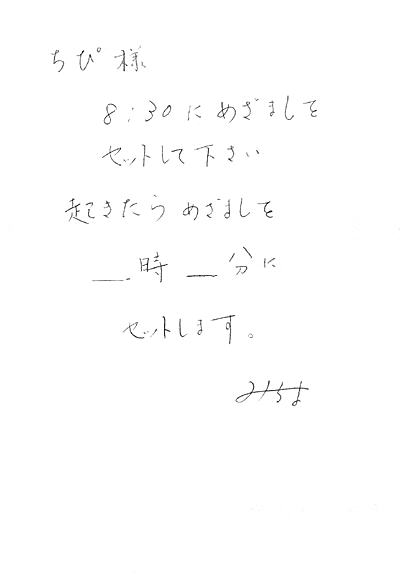 ちぴ様
8:30にめざましを
セットして下さい
起きたらめざましを
__時__分に
セットします。
みちよ